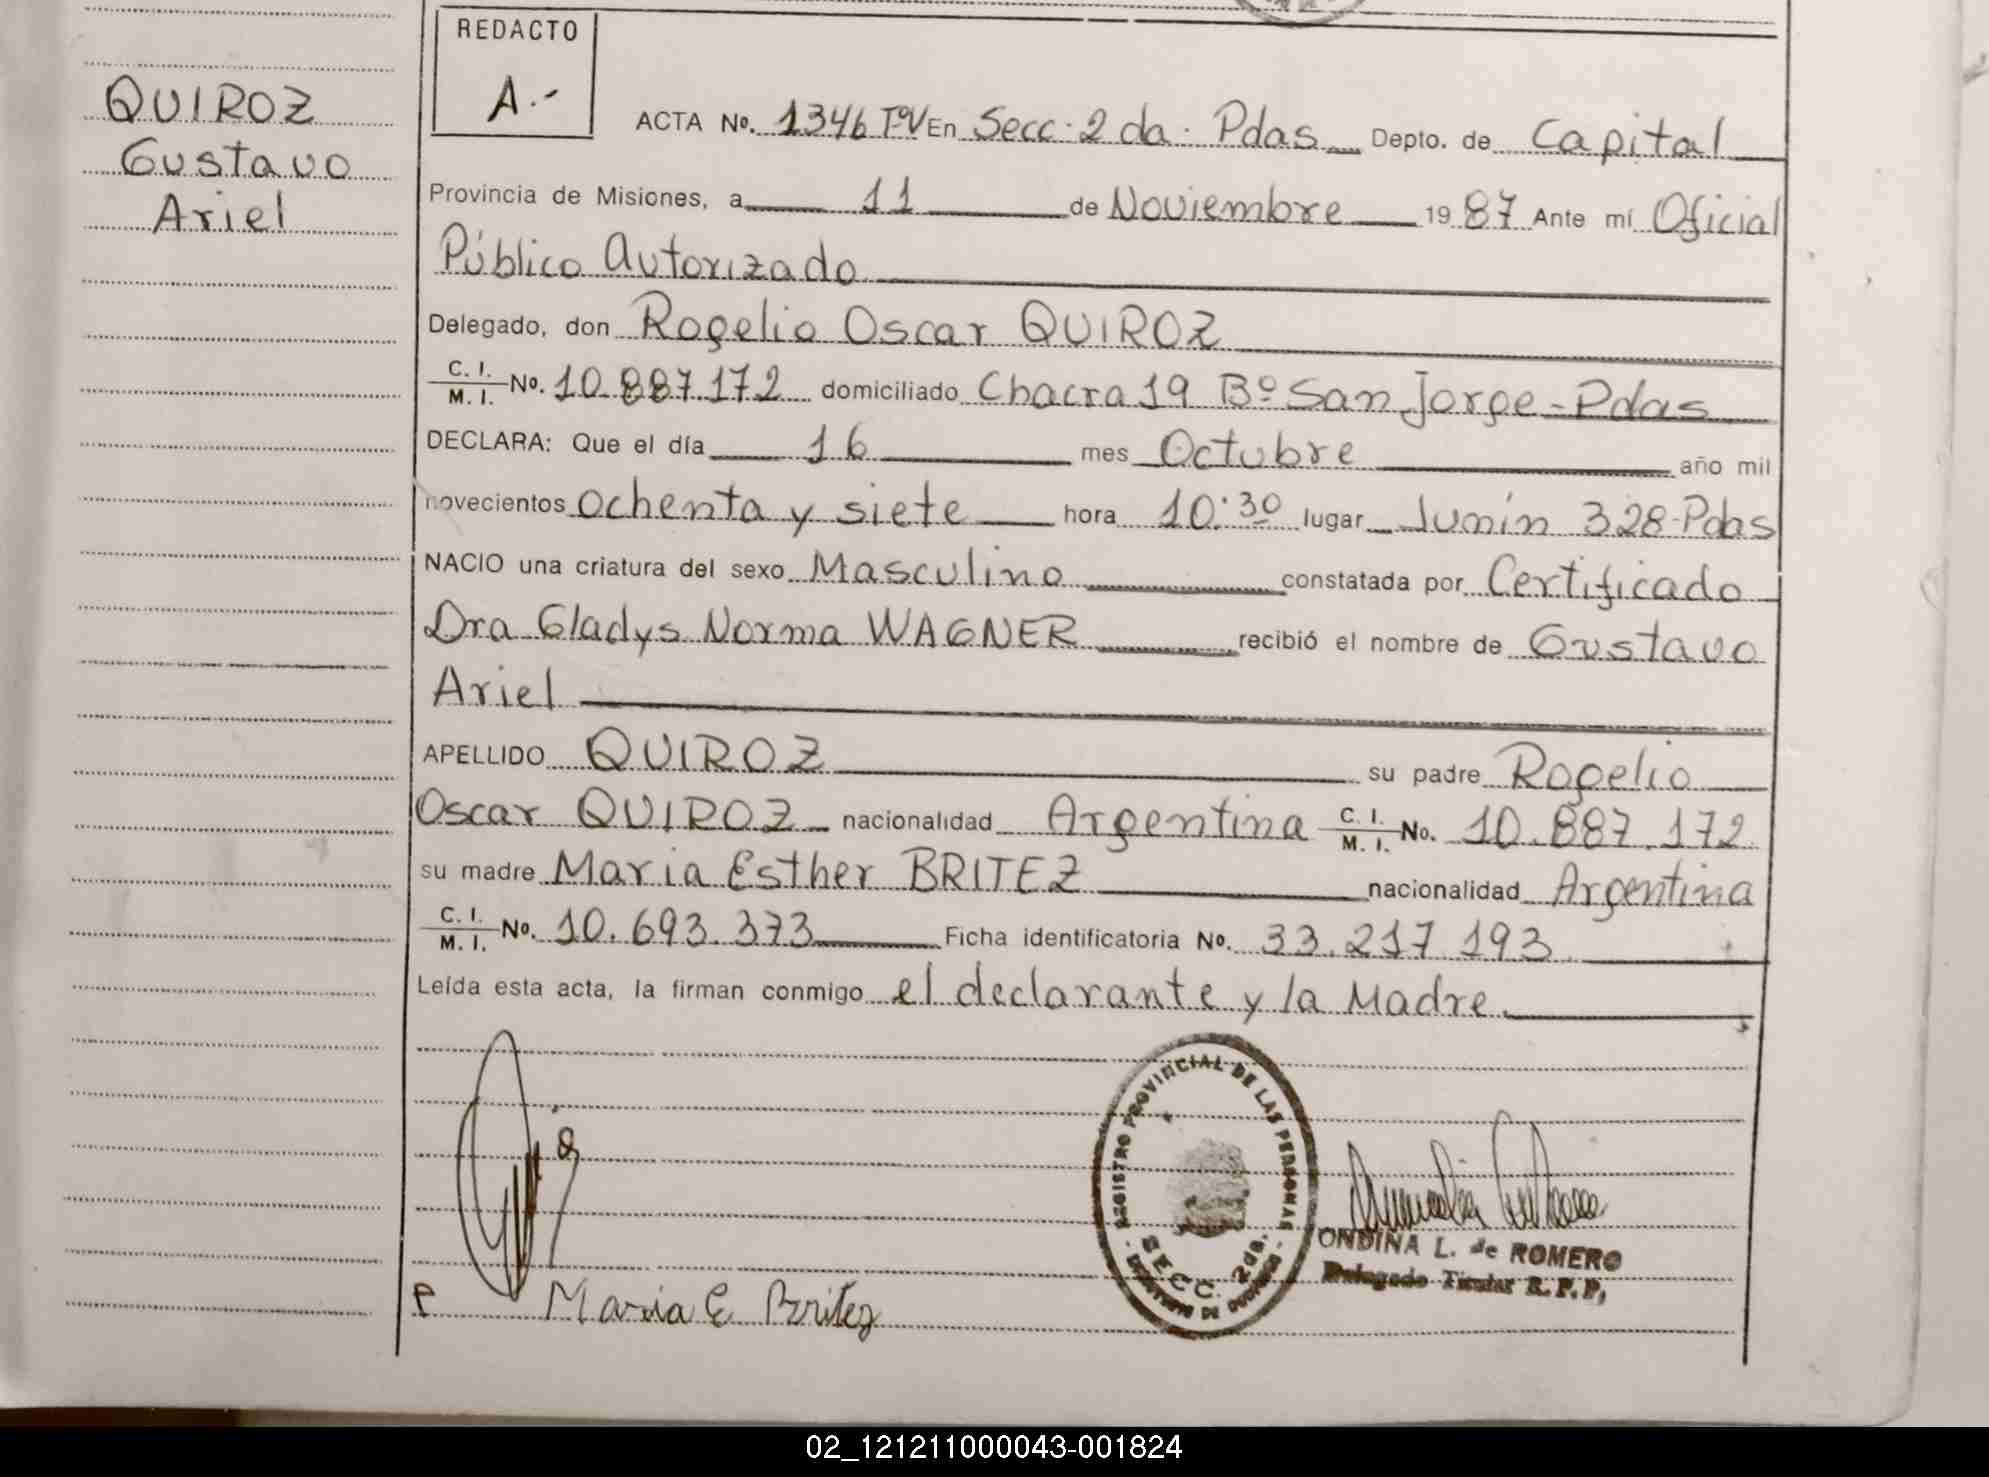 REDACTO
A.-
QUIROZ
Gustavo
Ariel
ACTA No. 1346 TºV En Secc. 2 da. Pdas Depto. de Capital
Provincia de Misiones, a 11 de Noviembre 1987 Ante mí Oficial
Público Autorizado
Delegado, don Rogelio Oscar QUIROZ
C. I. / M. I. No. 10.887.172 domiciliado Chacra 19 Bº San Jorge - Pdas
DECLARA: Que el día 16 mes Octubre año mil
novecientos ochenta y siete hora 10:30 lugar Junín 328-Pdas
NACIO una criatura del sexo Masculino constatada por Certificado
Dra Gladys Norma WAGNER recibió el nombre de Gustavo
Ariel
APELLIDO QUIROZ su padre Rogelio
Oscar QUIROZ nacionalidad Argentina C. I. / M. I. No. 10.887.172
su madre Maria Esther BRITEZ nacionalidad Argentina
C. I. / M. I. No. 10.693.373 Ficha identificatoria No. 33.217.193
Leída esta acta, la firman conmigo el declarante y la Madre
REGISTRO PROVINCIAL DE LAS PERSONAS
SECC. 2da.
ONDINA L. de ROMERO
Delegado Titular R.P.P.
Maria E Britez
02_121211000043-001824